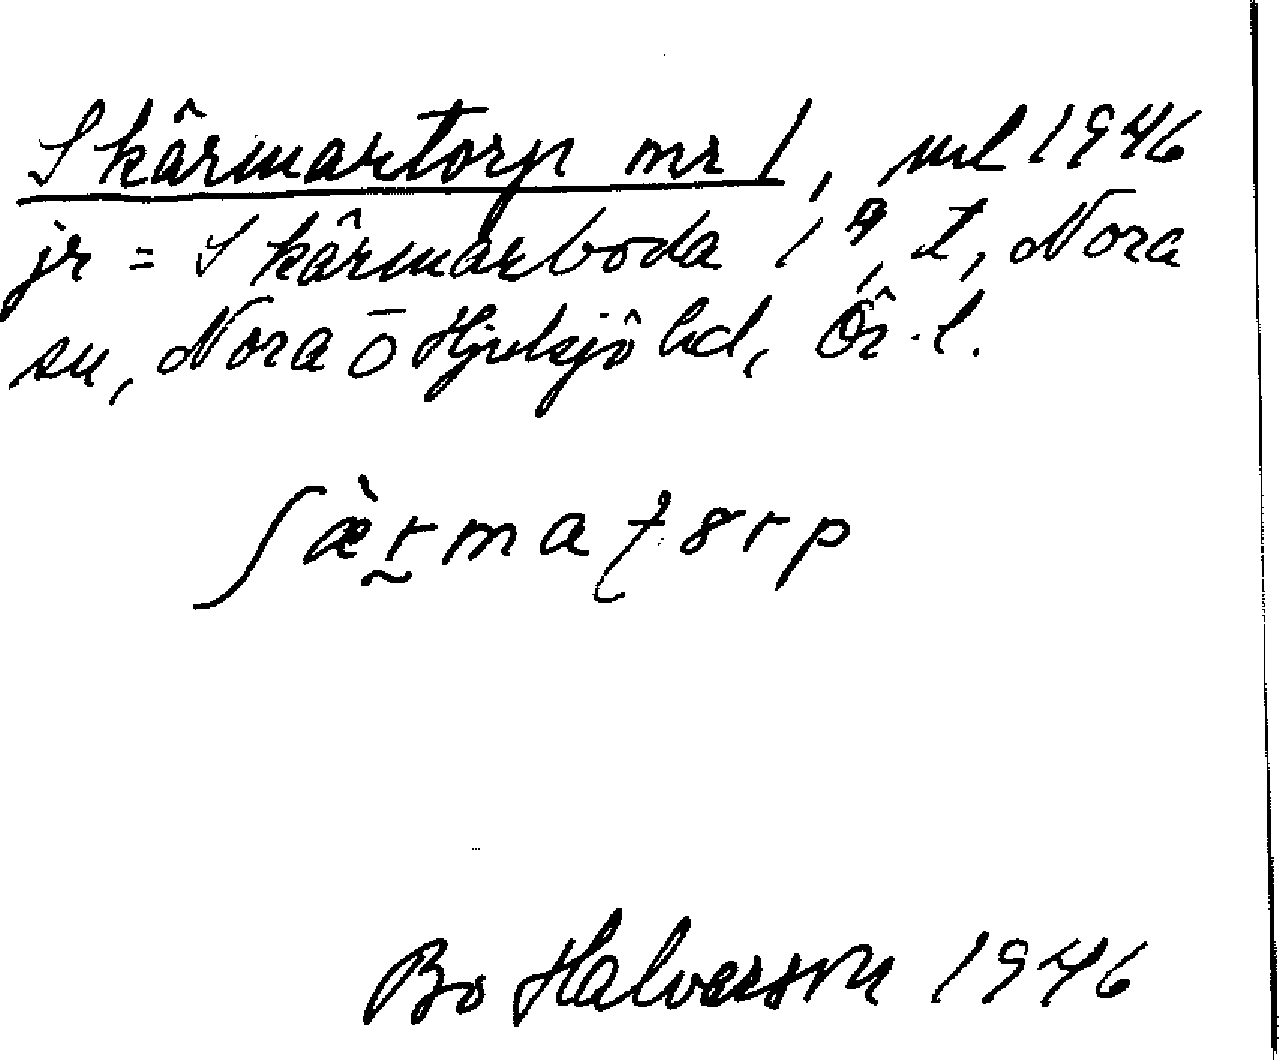 Skärmartorp nr 1, ml 1946
jr = Skärmarboda 1⁹, t, Nora
sn, Nora o Hjulsjö hd, Ör. l.
ʃæ̀r̰maʈ8rp
Bo Halvarson 1946